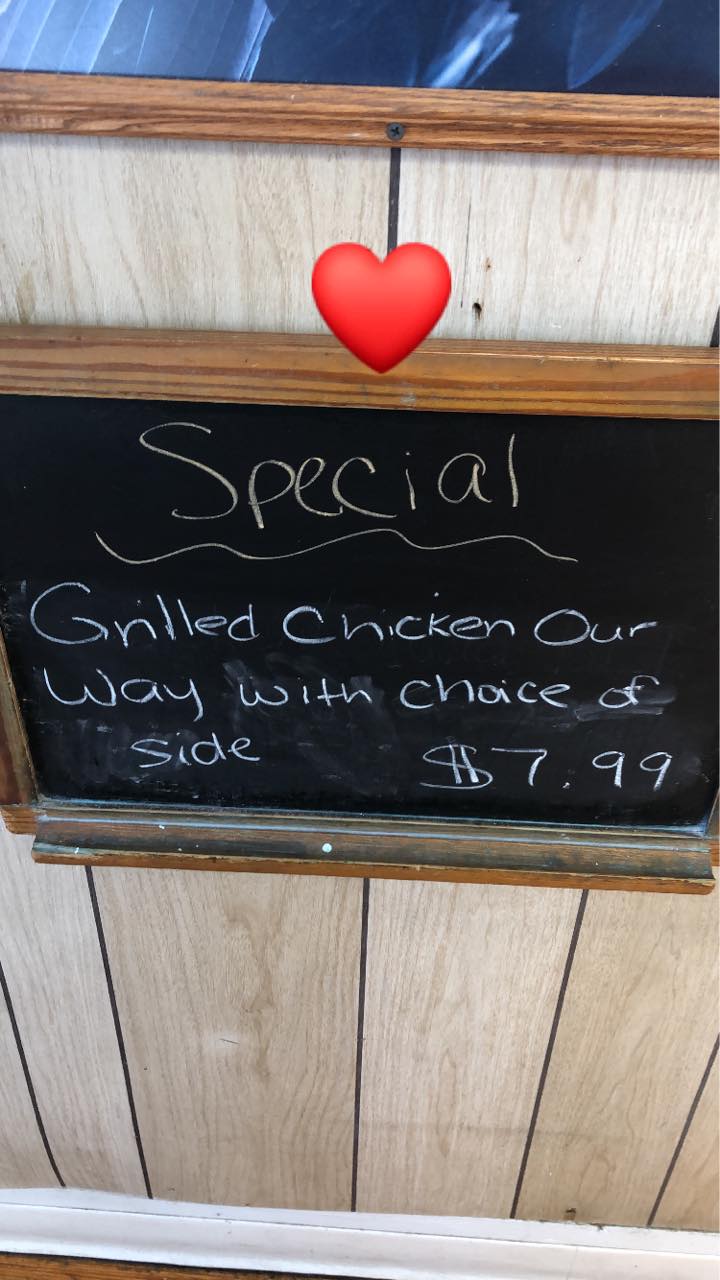 Special
Grilled Chicken Our
Way with choice of
side $7.99